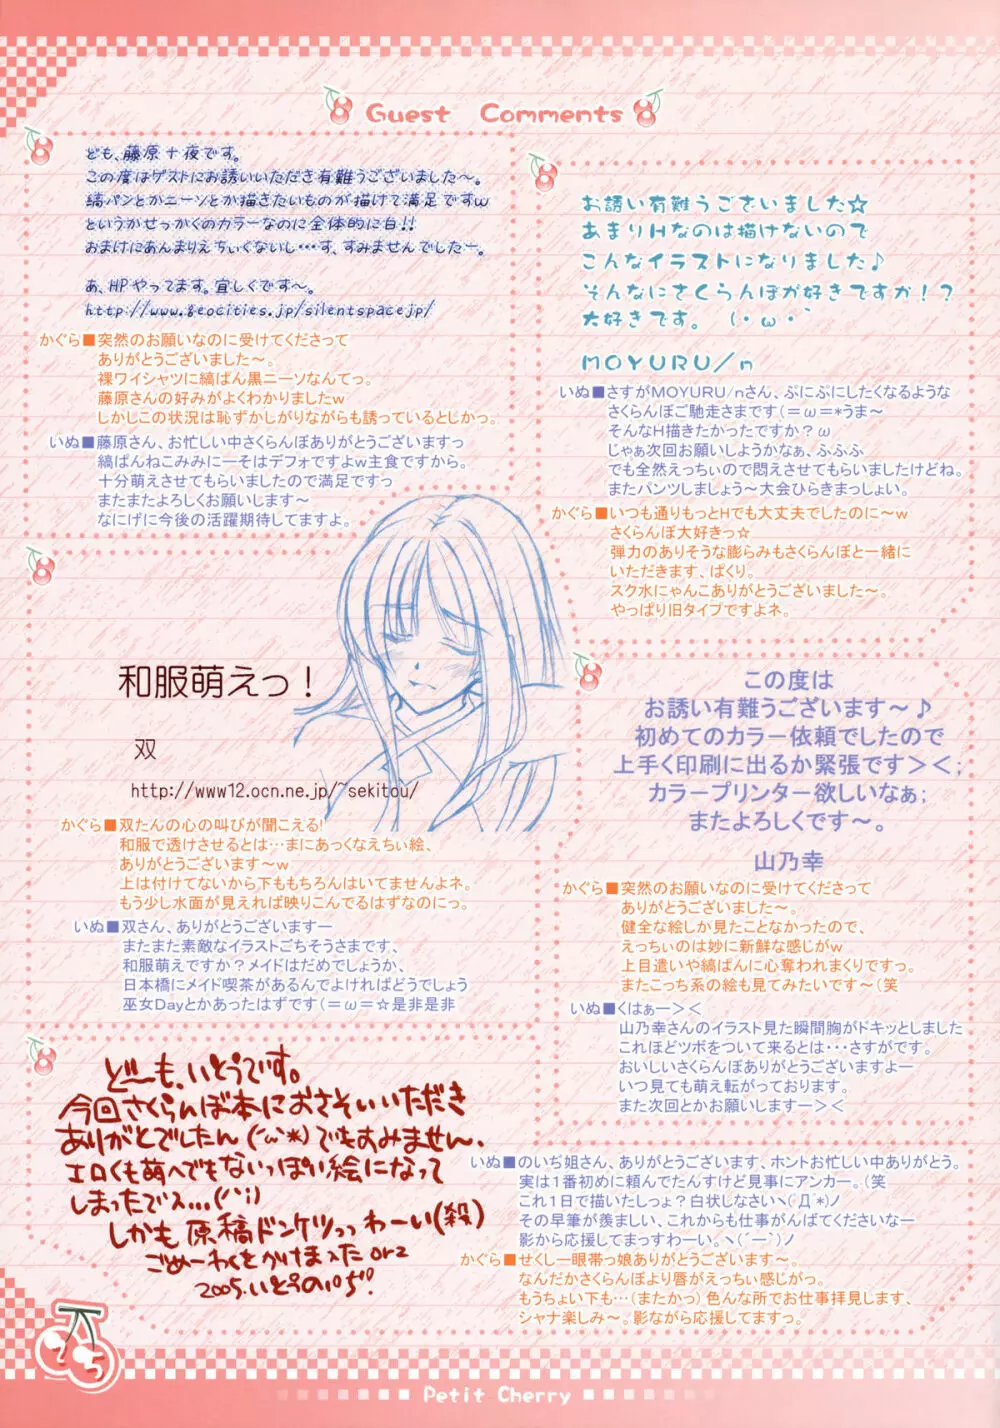 Guest Comments
ども、藤原十夜です。
この度はゲストにお誘いいただき有難うございました〜。
縞パンとかニーソとか描きたいものが描けて満足ですw
というかせっかくのカラーなのに全体的に白!!
おまけにあんまりえちぃくないし…す、すみませんでしたー。
あ、HPやってます。宜しくです〜。
http://www.geocities.jp/silentspacejp/
かぐら■突然のお願いなのに受けてくださって
ありがとうございました〜。
裸ワイシャツに縞ぱん黒ニーソなんてっ。
藤原さんの好みがよくわかりましたw
しかしこの状況は恥ずかしがりながらも誘っているとしかっ。
いぬ■藤原さん、お忙しい中さくらんぼありがとうございますっ
縞ぱんねこみみにーそはデフォですよw主食ですから。
十分萌えさせてもらいましたので満足ですっ
またまたよろしくお願いします〜
なにげに今後の活躍期待してますよ。
お誘い有難うございました☆
あまりHなのは描けないので
こんなイラストになりました♪
そんなにさくらんぼが好きですか!?
大好きです。（・ω・｀
MOYURU/n
いぬ■さすがMOYURU/nさん、ぷにぷにしたくなるような
さくらんぼご馳走さまです(＝ω＝*うま〜
そんなH描きたかったですか？ω
じゃぁ次回お願いしようかなぁ、ふふふ
でも全然えっちぃので悶えさせてもらいましたけどね。
またパンツしましょう〜大会ひらきまっしょい。
かぐら■いつも通りもっとHでも大丈夫でしたのに〜w
さくらんぼ大好きっ☆
弾力のありそうな膨らみもさくらんぼと一緒に
いただきます、ぱくり。
スク水にゃんこありがとうございました〜。
やっぱり旧タイプですよネ。
和服萌えっ！
双
http://www12.ocn.ne.jp/~sekitou/
かぐら■双たんの心の叫びが聞こえる!
和服で透けさせるとは…まにあっくなえちぃ絵、
ありがとうございます〜w
上は付けてないから下ももちろんはいてませんよネ。
もう少し水面が見えれば映りこんでるはずなのにっ。
いぬ■双さん、ありがとうございますー
またまた素敵なイラストごちそうさまです、
和服萌えですか？メイドはだめでしょうか、
日本橋にメイド喫茶があるんでよければどうでしょう
巫女Dayとかあったはずです(＝ω＝☆是非是非
この度は
お誘い有難うございます〜♪
初めてのカラー依頼でしたので
上手く印刷に出るか緊張です＞＜;
カラープリンター欲しいなぁ;
またよろしくです〜。
山乃幸
かぐら■突然のお願いなのに受けてくださって
ありがとうございました〜。
健全な絵しか見たことなかったので、
えっちぃのは妙に新鮮な感じがw
上目遣いや縞ぱんに心奪われまくりですっ。
またこっち系の絵も見てみたいです〜(笑
いぬ■くはぁー＞＜
山乃幸さんのイラスト見た瞬間胸がドキッとしました
これほどツボをついて来るとは・・・さすがです。
おいしいさくらんぼありがとうございますよー
いつ見ても萌え転がっております。
また次回とかお願いしますー＞＜
ど〜も、いとうです。
今回さくらんぼ本におさそいいただき
ありがとでしたん(´ω`*)でもすみません、
エロくも萌へでもないっぽい絵になって
しまったでス…(^^;)
しかも原稿ドンケツっっわーい(殺)
ごめーわくをかけまスた orz
2005.いとうのいぢ!
いぬ■のいぢ姐さん、ありがとうございます、ホントお忙しい中ありがとう。
実は1番初めに頼んでたんすけど見事にアンカー。(笑
これ1日で描いたしょ？白状しなさい＼(´Д`*)ノ
その早筆が羨ましい、これからも仕事がんばてくださいなー
影から応援してまっすわーい。ヽ(´ー｀)ノ
かぐら■せくしー眼帯っ娘ありがとうございます〜。
なんだかさくらんぼより唇がえっちぃ感じがっ。
もうちょい下も…(またかっ)色んな所でお仕事拝見します、
シャナ楽しみ〜。影ながら応援してますっ。
25
Petit Cherry